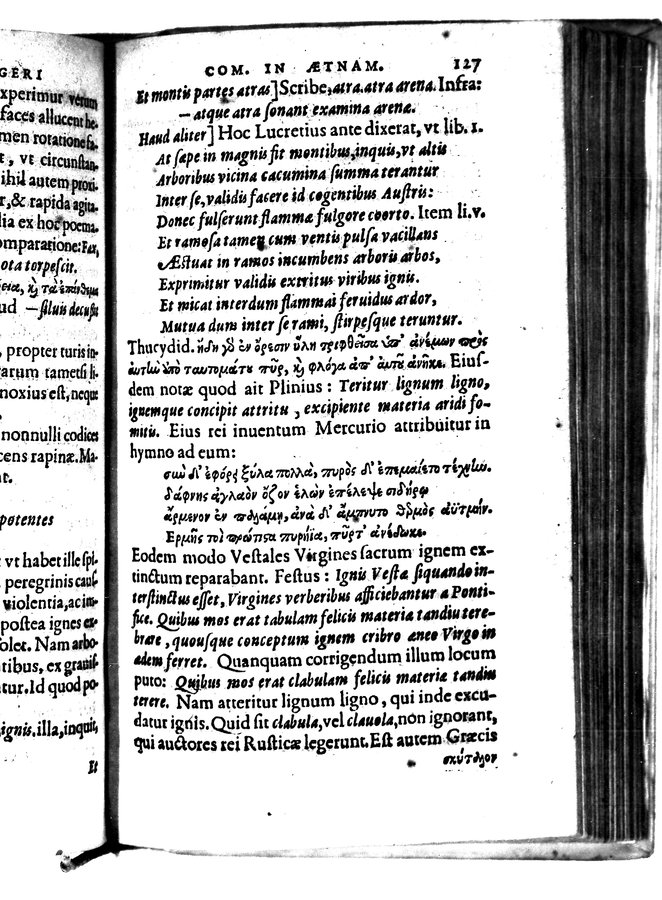 GERI
xperimur verum
faces allucent he-
men rotatione fa-
t, vt circunstan-
ihil autem prori-
r, & rapida agita-
lia ex hoc poema-
omparatione: Fax,
ota torpescit.
ud — siluis decussi
, propter turis in-
ratum tametsi li-
noxius est, neque
nonnulli codices
cens rapinæ. Ma-
potentes
vt habet ille
peregrinis
violentia, ac im-
postea ignes ex-
olet. Nam arbo-
tibus, ex
tur. Id quod po-
ignis. illa, inquit,
Et
COM. IN ÆTNAM. 127
Et montis partes atras] Scribe, atra. atra arena. Infra:
— atque atra sonant examina arenæ.
Haud aliter] Hoc Lucretius ante dixerat, vt lib. 1.
At sæpe in magnis fit montibus, inquis, vt altis
Arboribus vicina cacumina summa terantur
Inter se, validis facere id cogentibus Austris:
Donec fulserunt flammæ fulgore coorto. Item li. v.
Et ramosa tamen cum ventis pulsa vacillans
Æstuat in ramos incumbens arboris arbos,
Exprimitur validis extritus viribus ignis.
Et micat interdum flammai feruidus ardor,
Mutua dum inter se rami, stirpesque teruntur.
Thucydid. ἤδη γὸ ἐν ὄρεσιν ὕλη τριφθεῖσα ὑπ᾽ ἀνέμων πρὸς
ἑαυτὼ ἀπὸ ταυτομάτου πῦρ, καὶ φλόγα ἀπ᾽ αὐτοῦ ἀνῆκε. Eius-
dem notæ quod ait Plinius: Teritur lignum ligno,
ignemque concipit attritu, excipiente materia aridi fo-
mitis. Eius rei inuentum Mercurio attribuitur in
hymno ad eum:
σωὶ δ᾽ ἐφόρει ξύλα πολλὰ, πυρὸς δ᾽ ἐπεμαίετο τέχνην.
δάφνης ἀγλαὸν ὄζον ἑλὼν ἐπέλεψε σιδήρῳ
ἄρμενον ἐν παλάμῃ, ἀνὰ δ᾽ ἄμπνυτο θερμὸς ἀϋτμήν.
Ἑρμῆς τοι πρώτιστα πυρήϊα, πῦρτ᾽ ἀνέδωκε.
Eodem modo Vestales Virgines sacrum ignem ex-
tinctum reparabant. Festus: Ignis Vestæ siquando in-
terstinctus esset, Virgines verberibus afficiebantur a Ponti-
fice. Quibus mos erat tabulam felicis materiæ tandiu tere-
brare, quousque conceptum ignem cribro æneo Virgo in
ædem ferret. Quanquam corrigendum illum locum
puto: Quibus mos erat clabulam felicis materiæ tandiu
terere. Nam atteritur lignum ligno, qui inde excu-
datur ignis. Quid sit clabula, vel clauola, non ignorant,
qui auctores rei Rusticæ legerunt. Est autem Græcis